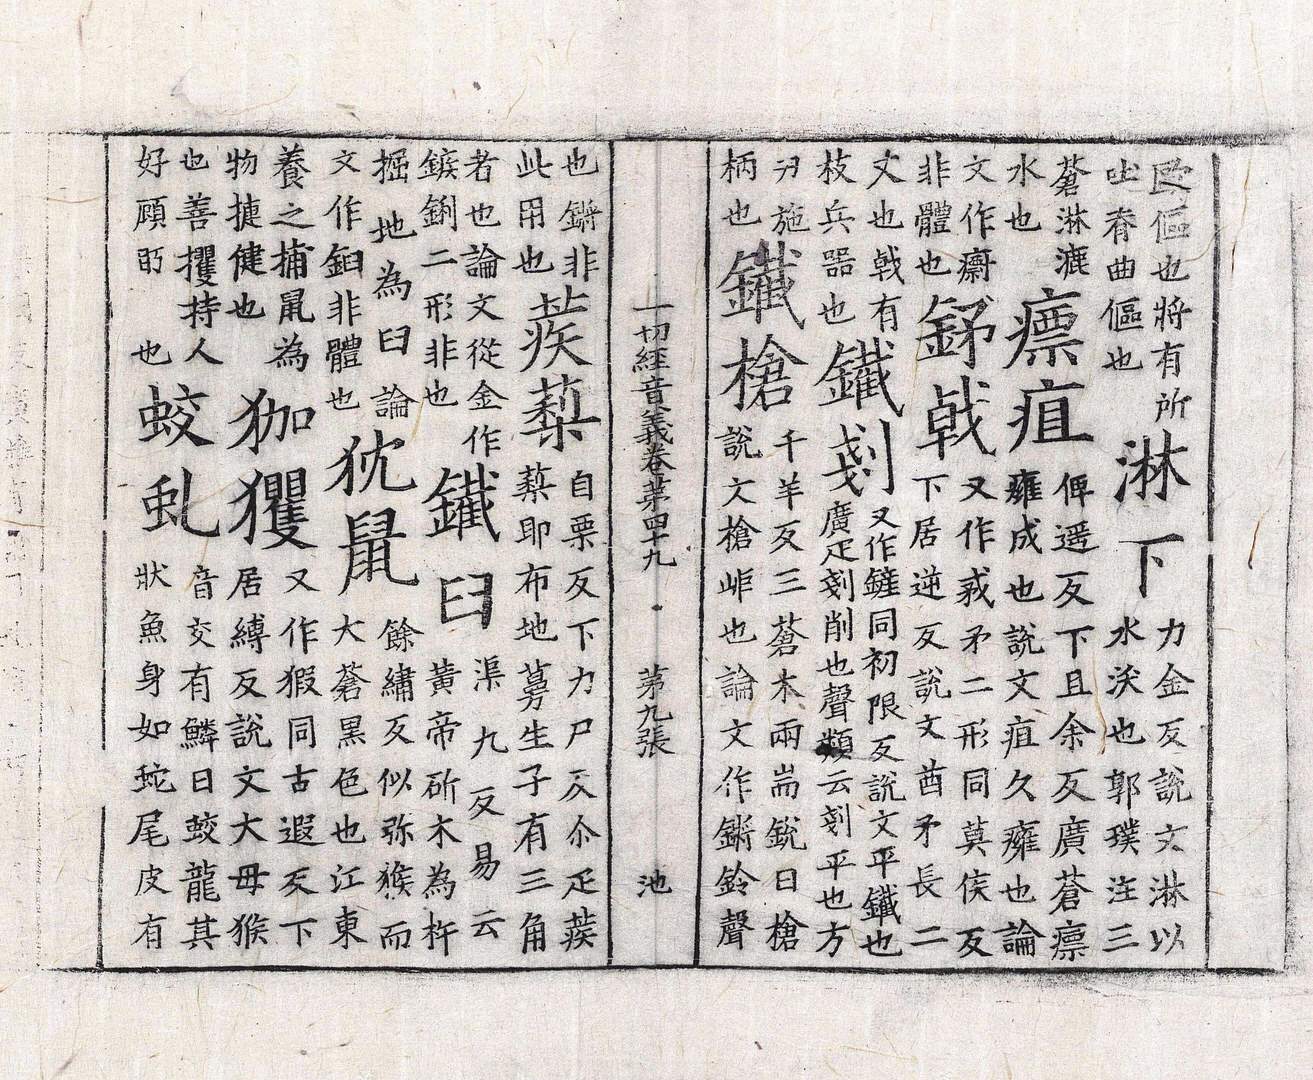 歐傴也將有所
㘴脊曲傴也
淋下
力金反説文淋以
水沃也郭璞注三
蒼淋漉
水也
瘭疽
俾遥反下且余反廣蒼瘭
癰成也説文疽久癰也論
文作
非體也
鉾戟
又作𢦧矛二形同莫侯反
下居逆反説文酋矛長二
丈也戟有
枝兵器也
鐵剗
又作鏟同初限反説文平鐵也
廣疋剗削也聲類云剗平也方
刃施
柄也
鐵槍
千羊反三蒼木兩耑鋭曰槍
説文槍歫也論文作鏘鈴聲
一切經音義卷第四十九 第九張 池
也鏘非
此用也
蒺䔧
自栗反下力尸反尒疋蒺
䔧即布地蔓生子有三角
者也論文從金作
鏃鋓二形非也
鐵臼
渠九反易云
黄帝斫木為杵
掘地為臼論
文作非體也
狖鼠
餘繡反似獼猴而
大蒼黑色也江東
養之捕鼠為
物捷健也
㹢玃
又作猳同古遐反下
居縛反説文大母猴
也善攫持人
好顧眄也
蛟虬
音交有鱗曰蛟龍其
狀魚身如蛇尾皮有